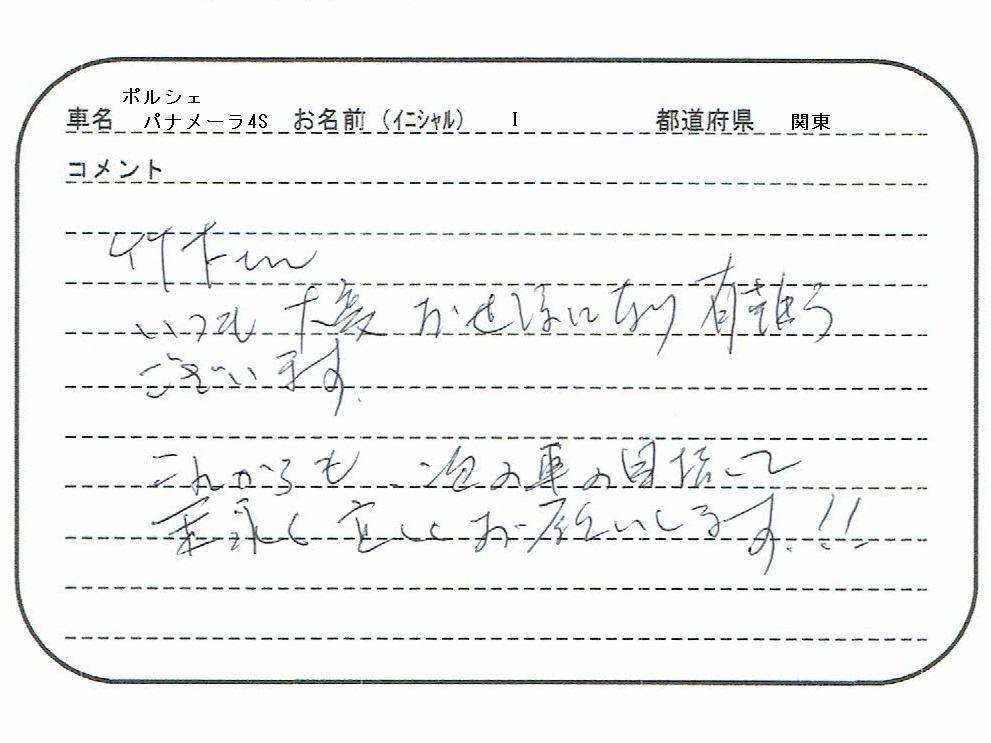 ポルシェ
車名 パナメーラ4S お名前(イニシャル) I 都道府県 関東
コメント
竹下さん
いつも 大変 お世話になり 有難う
ございます.
これからも、次の車の目指して
末永く宜しくお願いします.!!